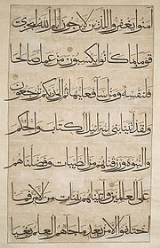 امنوا يغفروا للذين لا يرجون ايام الله ليجزي
قوما بما كانوا يكسبون من عمل صالحا
فلنفسه ومن اساء فعليها ثم الى ربكم ترجعون
ولقد اتينا بني اسرائيل الكتاب والحكم
والنبوة ورزقناهم من الطيبات وفضلناهم
على العالمين واتيناهم بينات من الامر فما
اختلفوا الا من بعد ما جاءهم العلم بغيا